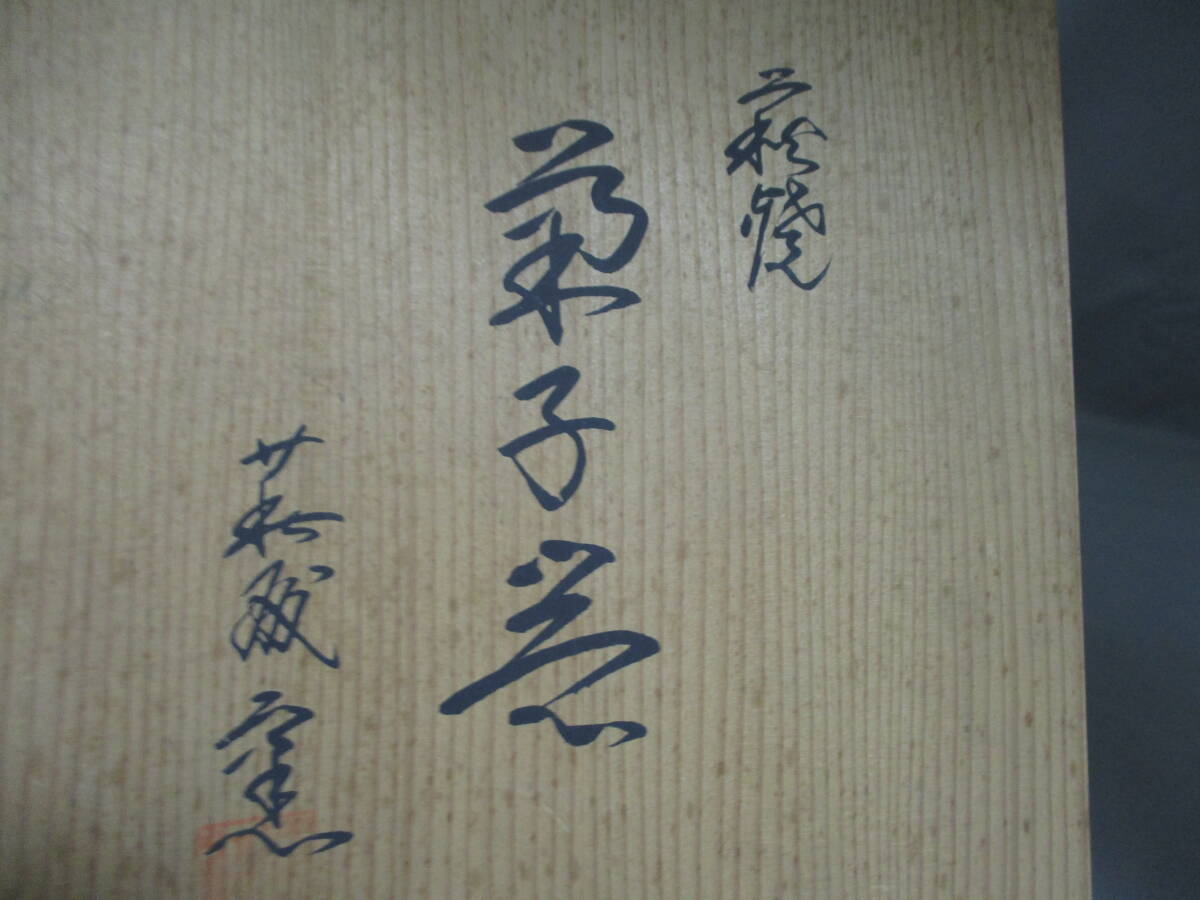 萩焼
菓子器
萩成窯